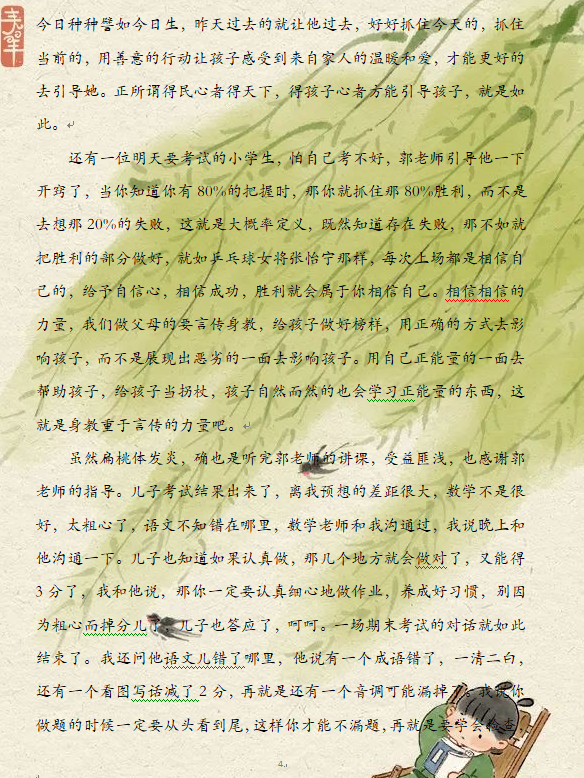 今日种种譬如今日生，昨天过去的就让他过去，好好抓住今天的，抓住
当前的，用善意的行动让孩子感受到来自家人的温暖和爱，才能更好的
去引导她。正所谓得民心者得天下，得孩子心者方能引导孩子，就是如
此。
还有一位明天要考试的小学生，怕自己考不好，郭老师引导他一下
开窍了，当你知道你有 80%的把握时，那你就抓住那 80%胜利，而不是
去想那 20%的失败，这就是大概率定义，既然知道存在失败，那不如就
把胜利的部分做好，就如乒乓球女将张怡宁那样，每次上场都是相信自
己的，给予自信心，相信成功，胜利就会属于你相信自己。相信相信的
力量，我们做父母的要言传身教，给孩子做好榜样，用正确的方式去影
响孩子，而不是展现出恶劣的一面去影响孩子。用自己正能量的一面去
帮助孩子，给孩子当拐杖，孩子自然而然的也会学习正能量的东西，这
就是身教重于言传的力量吧。
虽然扁桃体发炎，确也是听完郭老师的讲课，受益匪浅，也感谢郭
老师的指导。儿子考试结果出来了，离我预想的差距很大，数学不是很
好，太粗心了，语文不知错在哪里，数学老师和我沟通过，我说晚上和
他沟通一下。儿子也知道如果认真做，那几个地方就会做对了，又能得
3 分了，我和他说，那你一定要认真细心地做作业，养成好习惯，别因
为粗心而掉分儿了。儿子也答应了，呵呵。一场期末考试的对话就如此
结束了。我还问他语文儿错了哪里，他说有一个成语错了，一清二白，
还有一个看图写话减了 2 分，再就是还有一个音调可能漏掉了。我说你
做题的时候一定要从头看到尾，这样你才能不漏题，再就是要学会检查
4